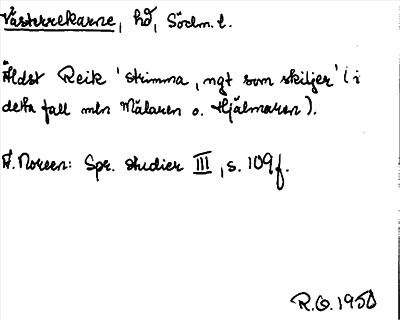 Västerrekarne, hd, Södm. l.
Äldst Reik 'strimma, ngt som skiljer' (i
detta fall mln Mälaren o. Hjälmaren).
A. Noreen: Spr. studier III, s. 109 f.
R.O. 1950